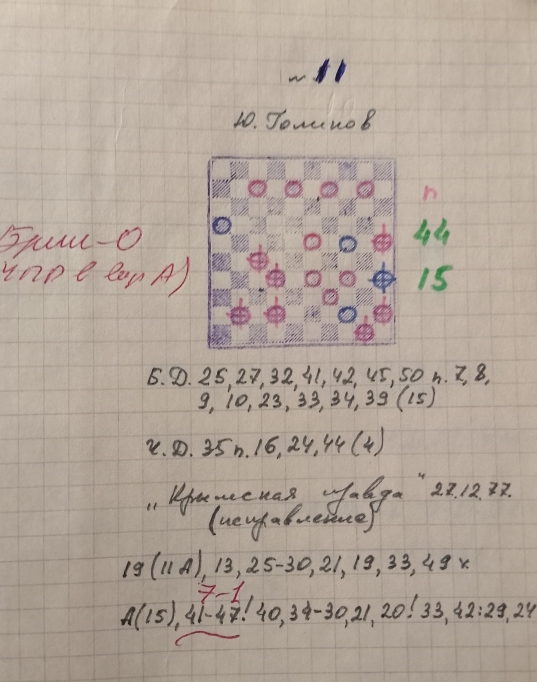 ~ 11
Ю. Голиков
п
44
15
Б.Д. 25, 27, 32, 41, 42, 45, 50 п. 7, 8,
9, 10, 23, 33, 34, 39 (15)
Ч.Д. 35 п. 16, 24, 44 (4)
„Крымская правда" 27.12.77.
(исправление)
19 (11 А), 13, 25-30, 21, 19, 33, 49 х
7-1
А(15), 41-47! 40, 34-30, 21, 20! 33, 42:29, 24